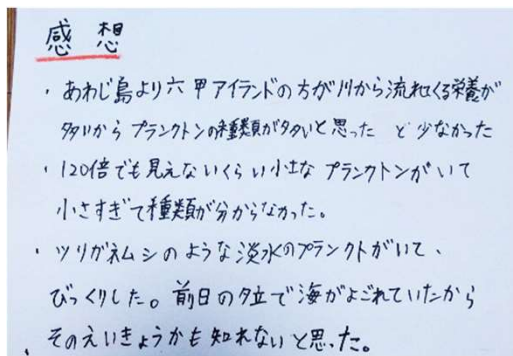 感想
・あわじ島より六甲アイランドの方が川から流れてくる栄養が
多いからプランクトンの種類が多いと思った ど少なかった
・120倍でも見えないくらい小さなプランクトンがいて
小さすぎて種類が分からなかった。
・ツリガネムシのような淡水のプランクトがいて、
びっくりした。前日の夕立で海がよごれていたから
そのえいきょうかも知れないと思った。